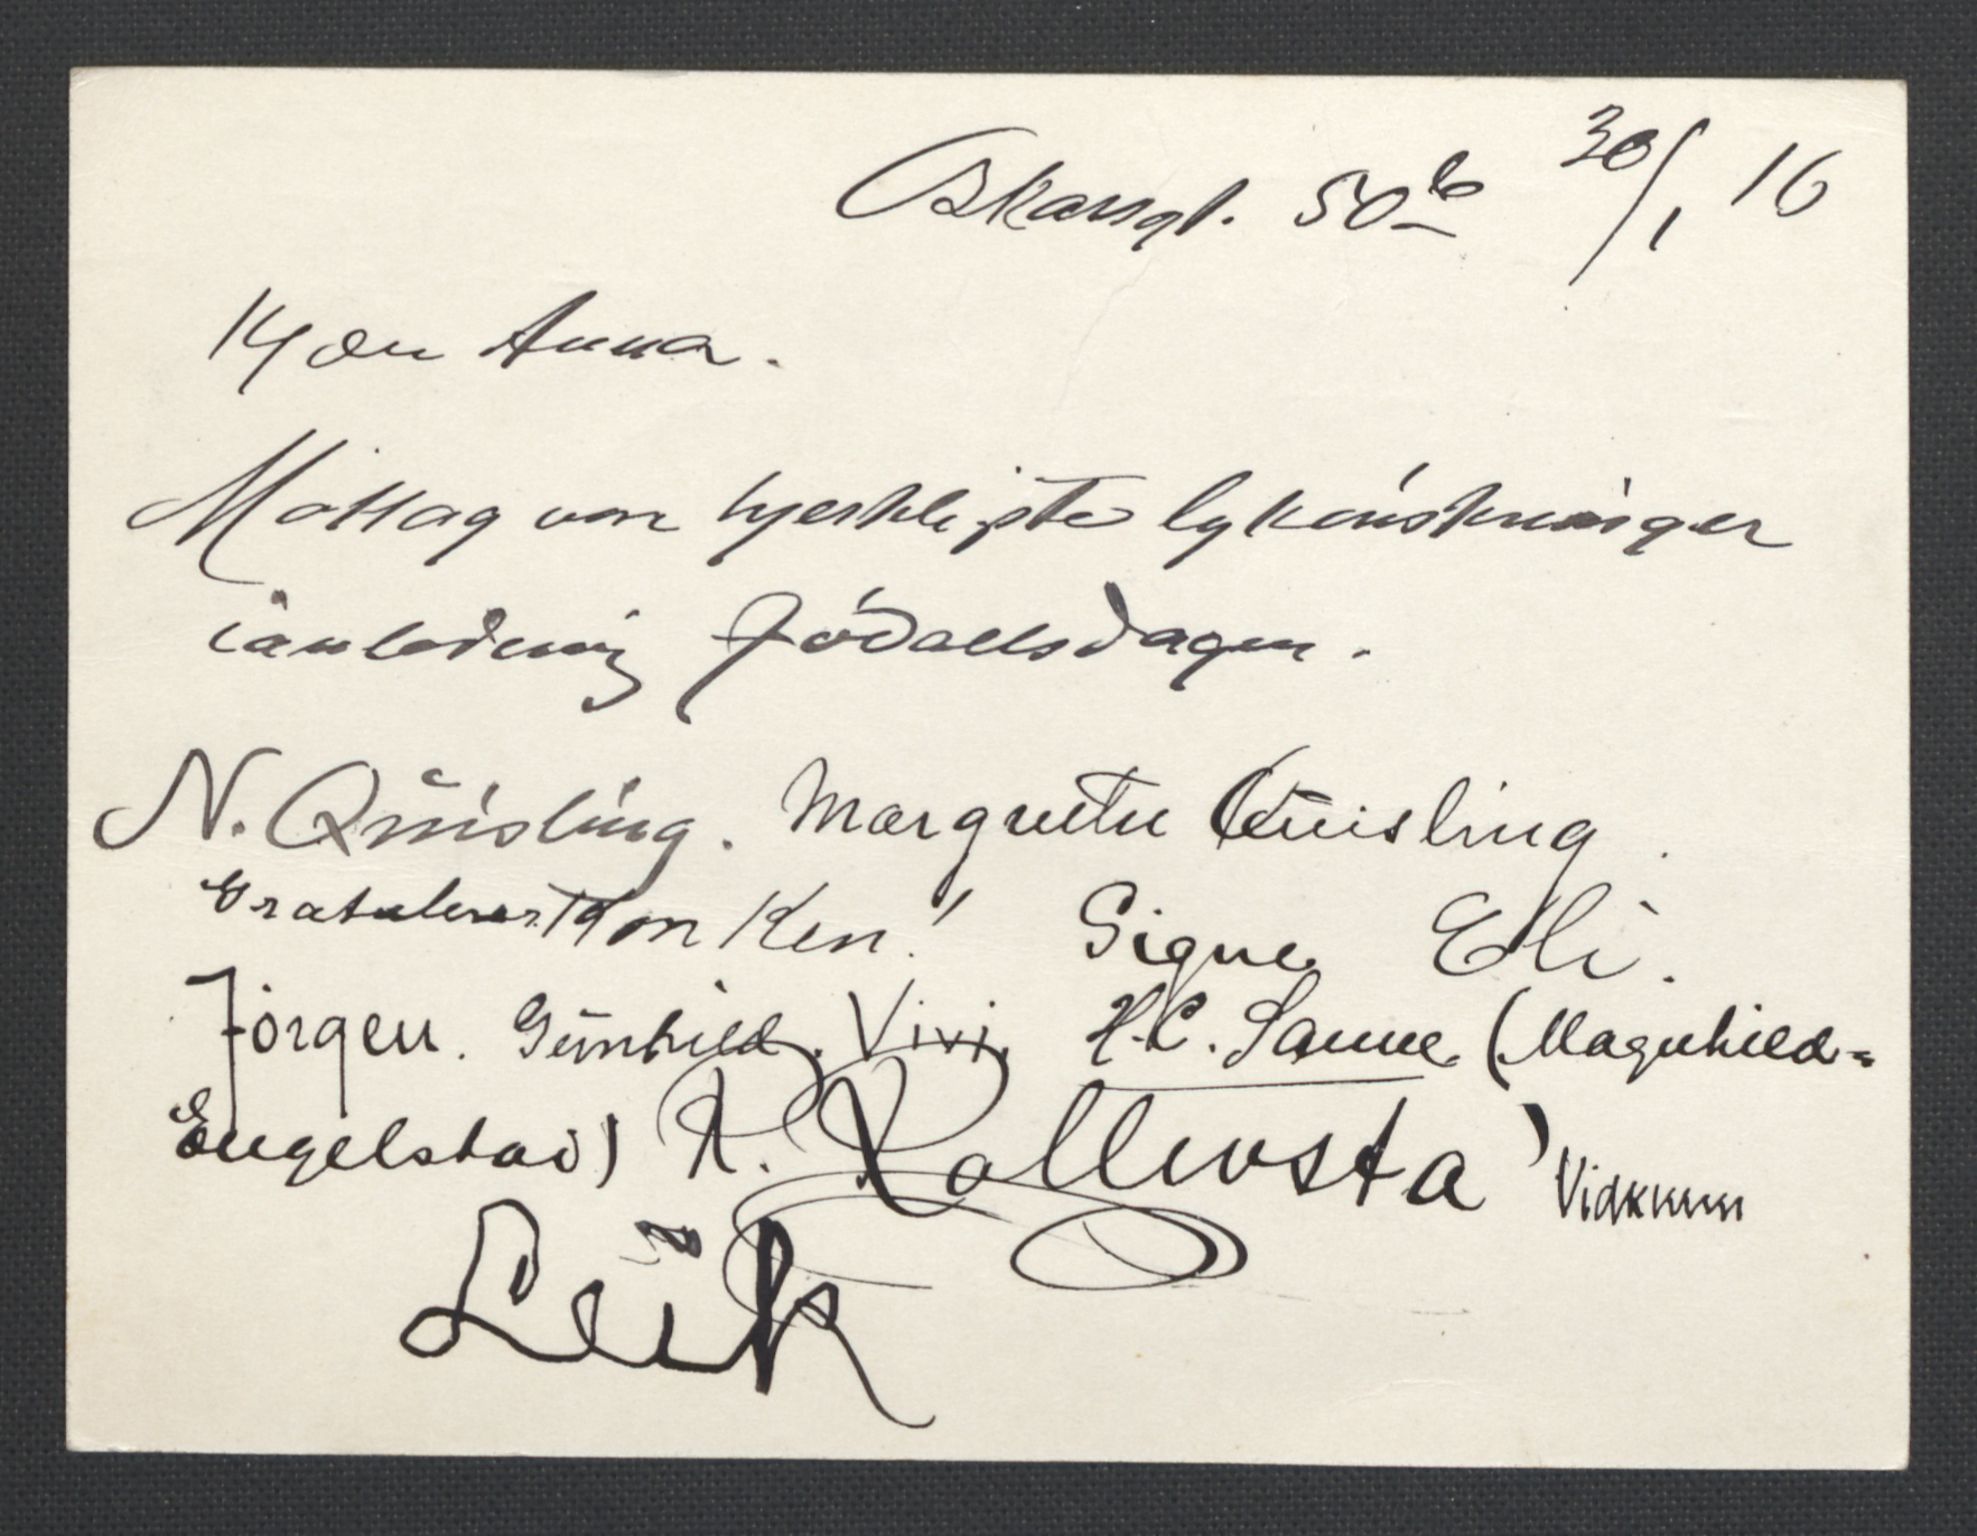 Oskarsgt. 50b 30/1 16
Kjære Anna.
Mottag vore hjerteligste lykønskninger
i anledning fødselsdagen.
N. Quisling. Margrethe Quisling.
Gratulerer Signe Eli.
Jörgen. Gunhild. Vivi. H.C. Sanne (Magnhild-
Engelstad) K. Kollevsta Vidkunn
Leik